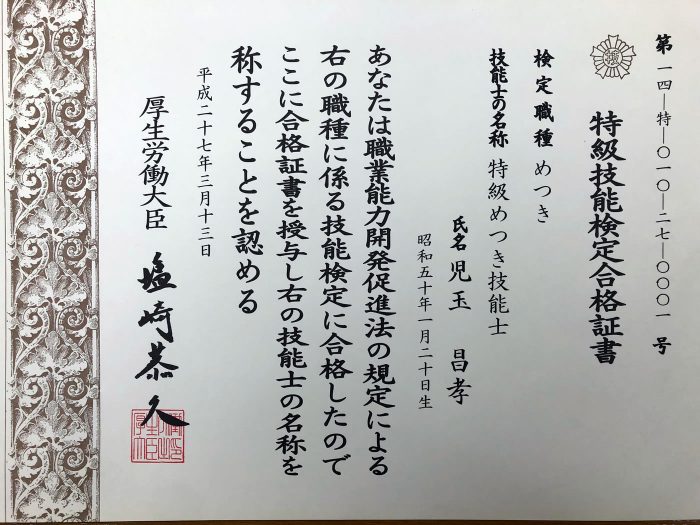 第一四―特―〇一〇―二七―〇〇〇一 号
特級技能検定合格証書
検定職種 めつき
技能士の名称 特級めつき技能士
氏名 児玉 昌孝
昭和五十年一月二十日生
あなたは職業能力開発促進法の規定による
右の職種に係る技能検定に合格したので
ここに合格証書を授与し右の技能士の名称を
称することを認める
平成二十七年三月十三日
厚生労働大臣 塩崎恭久